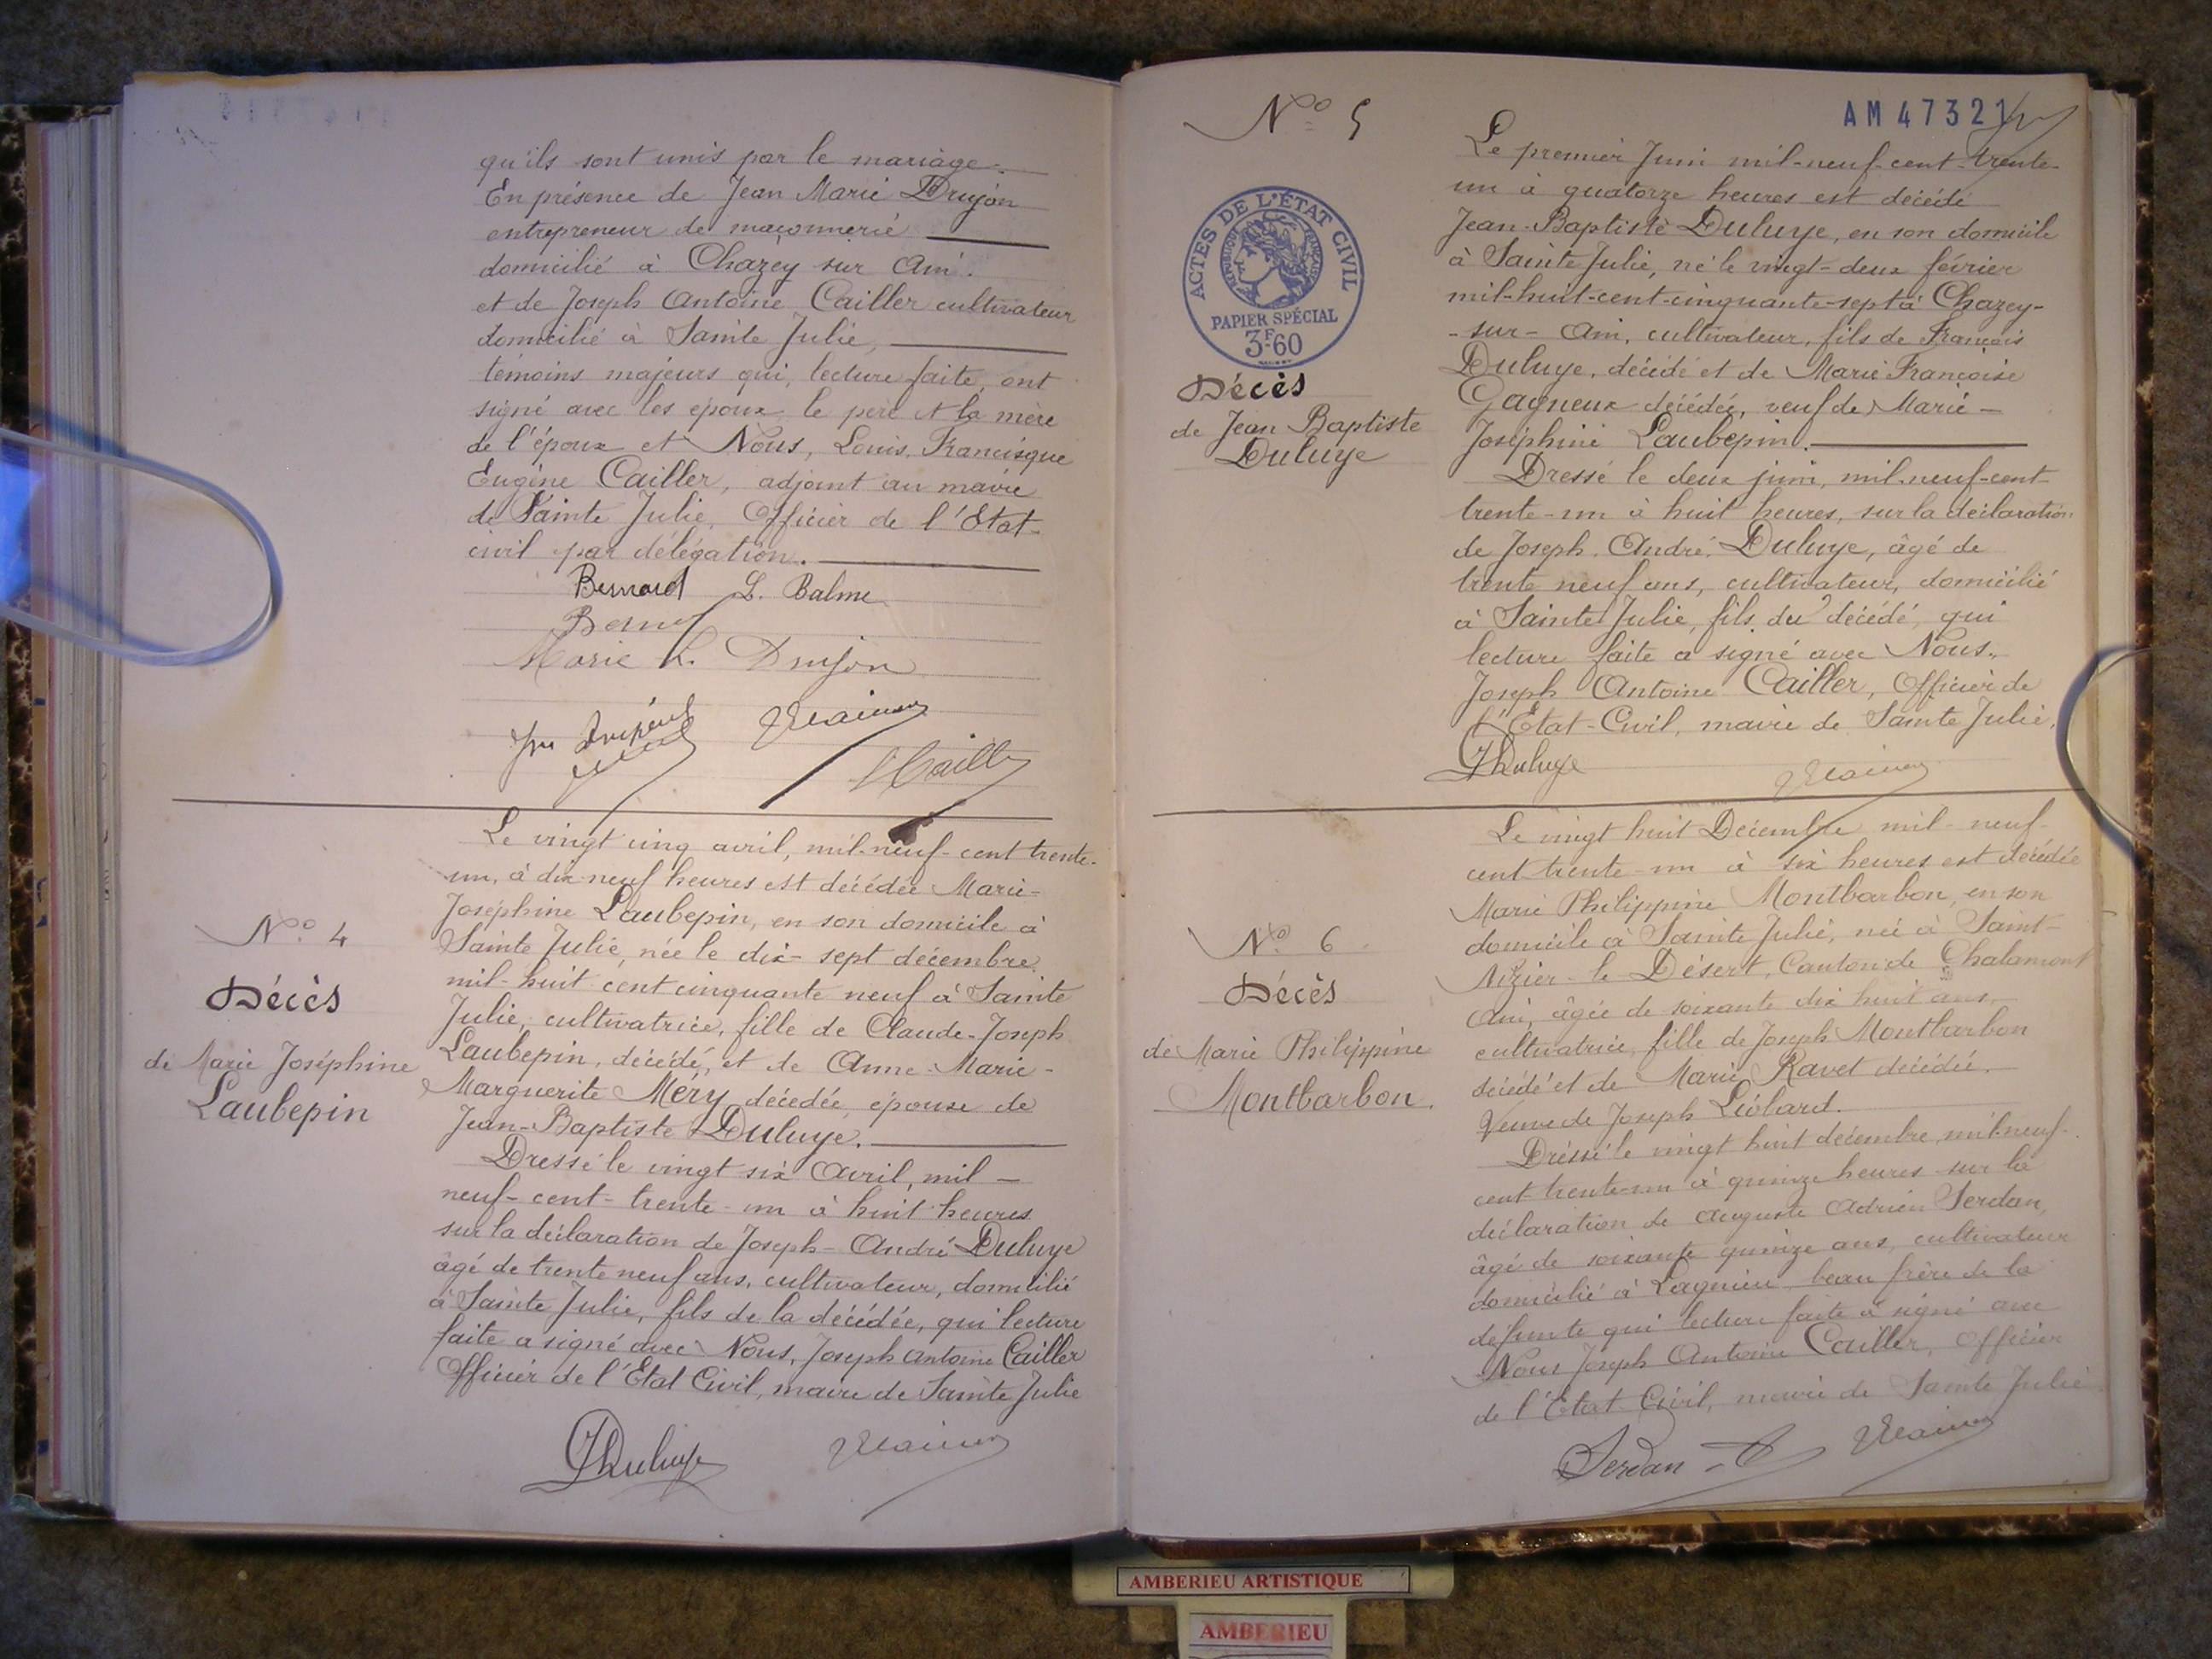 qu'ils sont unis par le mariage.
En présence de Jean Marie Drujon
entrepreneur de maçonnerie
domicilié à Chazey sur Ain.
et de Joseph Antoine Cailler cultivateur
domicilié à Sainte Julie,
témoins majeurs qui, lecture faite, ont
signé avec les époux le père et la mère
de l'époux et Nous, Louis, Francisque
Eugène Cailler, adjoint au maire
de Sainte Julie, Officier de l'Etat-
civil par délégation.
Bernard L. Balme
Marie L. Drujon
Le vingt cinq avril, mil-neuf-cent trente-
un, à dix-neuf heures est décédée Marie-
Joséphine Laubepin, en son domicile à
Sainte Julie, née le dix-sept décembre
mil-huit cent cinquante neuf à Sainte
Julie, cultivatrice, fille de Claude-Joseph
Laubepin, décédé, et de Anne-Marie-
Marguerite Méry décédée, épouse de
Jean-Baptiste Duluye.
Dressé le vingt six Avril, mil-
neuf-cent-trente-un à huit heures
sur la déclaration de Joseph-André Duluye
âgé de trente neuf ans, cultivateur, domicilié
à Sainte Julie, fils de la décédée, qui lecture
faite a signé avec Nous, Joseph Antoine Cailler
Officier de l'Etat Civil, maire de Sainte Julie
JDuluye
N° 4
Décès
de Marie Joséphine
Laubepin
N° 5
AM 47321
ACTES DE L'ÉTAT CIVIL
RÉPUBLIQUE FRANÇAISE
PAPIER SPÉCIAL
3F60
Décès
de Jean Baptiste
Duluye
Le premier Juin mil-neuf-cent-trente-
un à quatorze heures est décédé
Jean-Baptiste Duluye, en son domicile
à Sainte Julie, né le vingt-deux février
mil-huit-cent-cinquante-sept à Chazey-
-sur-Ain, cultivateur, fils de François
Duluye, décédé et de Marie Françoise
Gagneux décédée, veuf de Marie-
Joséphine Laubepin.
Dressé le deux juin, mil-neuf-cent-
trente-un à huit heures, sur la déclaration
de Joseph André Duluye, âgé de
trente neuf ans, cultivateur, domicilié
à Sainte Julie, fils du décédé, qui
lecture faite a signé avec Nous,
Joseph Antoine Cailler, Officier de
l'Etat-Civil, maire de Sainte Julie.
JDuluye
N° 6
Décès
de Marie Philippine
Montbarbon.
Le vingt huit Décembre mil-neuf-
cent trente-un à six heures est décédée
Marie Philippine Montbarbon, en son
domicile à Sainte Julie, née à Saint-
Nizier-le Désert, Canton de Chalamont
Ain, âgée de soixante dix huit ans,
cultivatrice, fille de Joseph Montbarbon
décédé et de Marie Ravet décédée.
Veuve de Joseph Liôlard.
Dressé le vingt huit décembre mil-neuf-
cent trente-un à quinze heures sur la
déclaration de Auguste Adrien Serdan,
âgé de soixante quinze ans, cultivateur
domicilié à Lagnieu, beau frère de la
défunte qui lecture faite a signé avec
Nous Joseph Antoine Cailler, Officier
de l'Etat Civil, maire de Sainte Julie
Serdan
AMBERIEU ARTISTIQUE
AMBERIEU